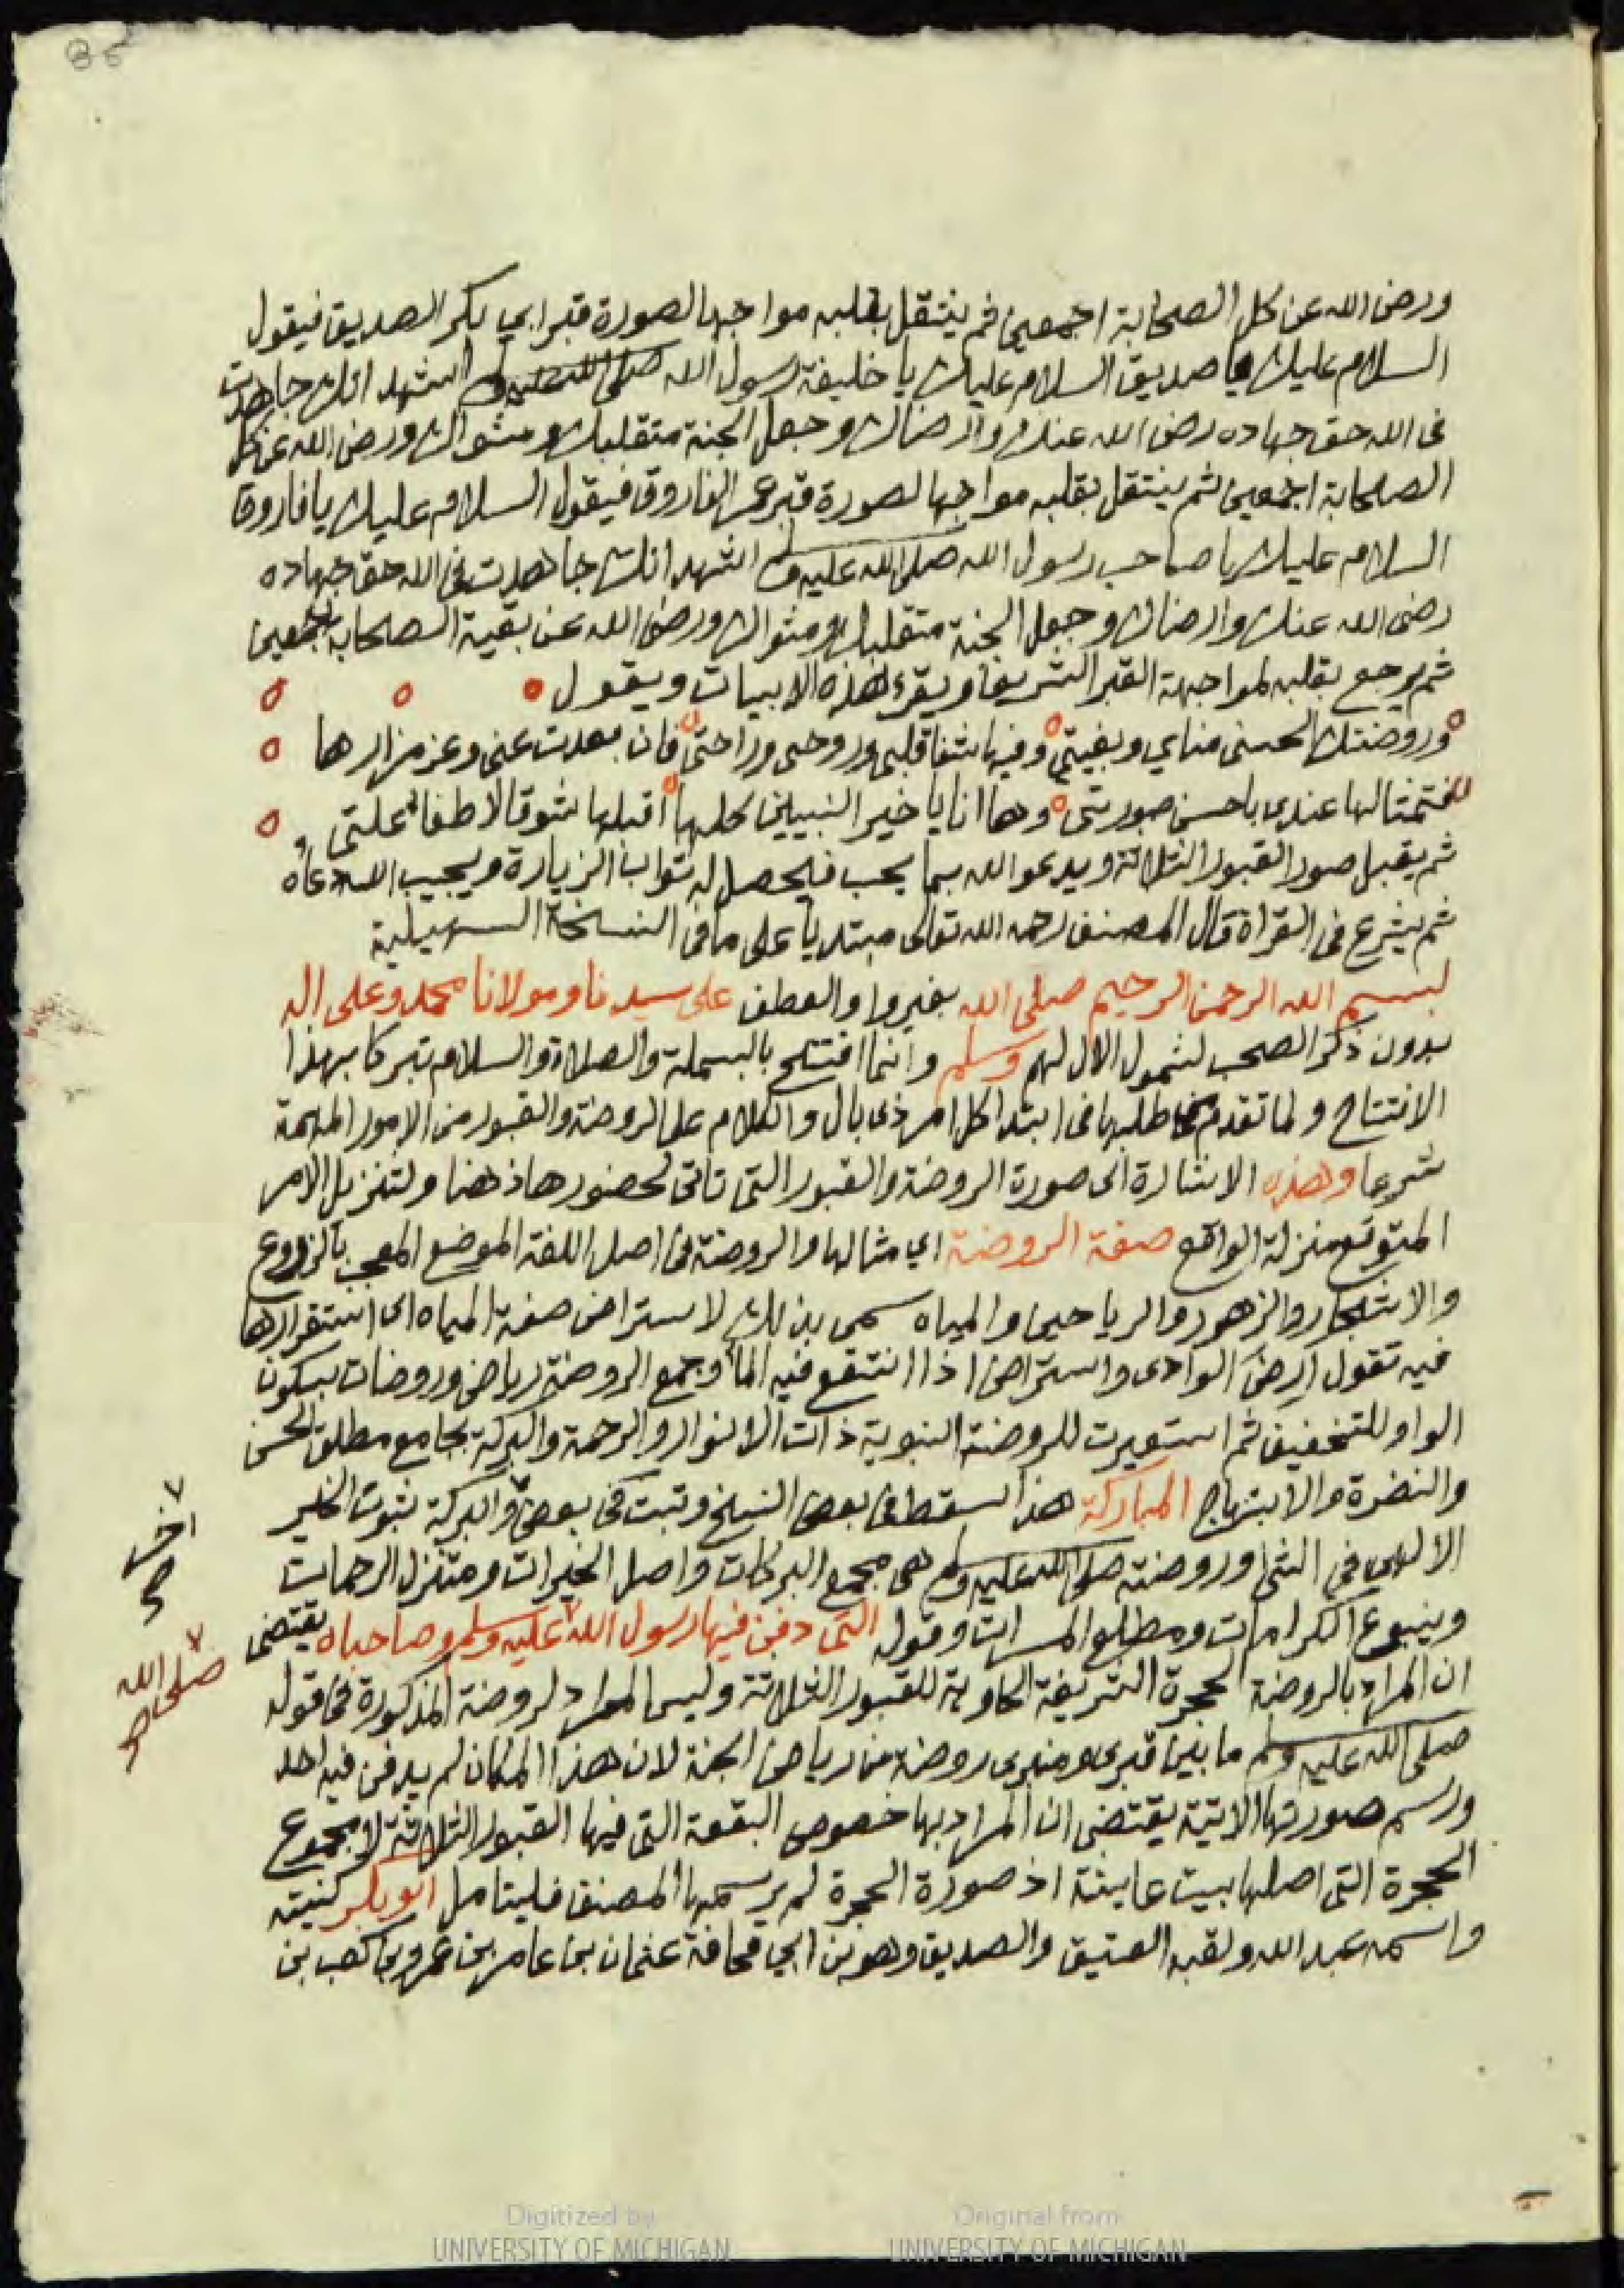 86
ورضى الله عن كل الصحابة اجمعين ثم ينتقل بقلبه مواجها لصورة قبر ابي بكر الصديق فيقول
السلام عليك يا صديق السلام عليك يا خليفة رسول الله صلى الله عليه وسلم اشهد انك جاهدت
فى الله حق جهاده رضى الله عنك وارضاك وجعل الجنة متقلبك ومثواك ورضى الله عن كل
الصحابة اجمعين ثم ينتقل بقلبه مواجها لصورة قبر عمر الفاروق فيقول السلام عليك يا فاروق
السلام عليك يا صاحب رسول الله صلى الله عليه وسلم اشهد انك جاهدت فى الله حق جهاده
رضى الله عنك وارضاك وجعل الجنة متقلبك ومثواك ورضى الله عن بقية الصحابه اجمعين
ثم يرجع بقلبه لمواجهة القبر الشريف ويقرء هذه الابيات ويقول
وروضتك الحسنى مناي وبغيتى وفيها شفا قلبى وروحى وراحتى فان بعدت عنى وعز مزارها
فتمثالها عندى باحسن صورتى وها انا يا خير النبيين كلها اقبلها شوقا لاطفا علتى
ثم يقبل صور القبور الثلاثة ويدعو الله بما يحب فيحصل له ثواب الزيارة ويجيب الله دعاه
ثم يشرع فى القراة قال المصنف رحمه الله تعالى مبتديا على ما فى النسخة السهيلية
بسم الله الرحمن الرحيم صلى الله بغير واو العطف على سيدنا ومولانا محمد وعلى اله
بدون ذكر الصحب لشمول الال لهم وسلم وانما افتتح بالبسملة والصلاة والسلام تبركا بهذا
الافتتاح ولما تقدم من طلبها فى ابتدا كل امر ذى بال والكلام على الروضة والقبور من الامور المهمة
شرعا وهذه الاشارة الى صورة الروضة والقبور التى تاتى لحضورها ذهنا ولتنزيل الامر
المتوقع منزلة الواقع صفة الروضة اي مثالها والروضة فى اصل اللغة الموضع المعجب بالزروع
والاشجار والزهور والرياحين والمياه سمى بذلك لاستراض صفة المياه اى استقرارها
فيه تقول ارض الوادى واستراض اذا انتقع فيه الما وجمع الروضة رياض وروضات بسكون
الواو للتخفيف ثم استعيرت للروضة النبوية ذات الانوار والرحمة والبركة بجامع مطلق الحسن
والنضرة والابتهاج المباركة هذا سقط فى بعض النسخ وثبت فى بعض والبركة ثبوت الخير
الالهى في الشى وروضته صلى الله عليه وسلم هى مجمع البركات واصل الخيرات ومتنزل الرحمات
وينبوع الكرامات ومطلع المسرات وقوله التى دفن فيها رسول الله عليه وسلم وصاحباه يقتضى
ان المراد بالروضة الحجرة الشريفة الحاوية للقبور الثلاثة وليس المراد لروضة المذكورة فى قوله
صلى الله عليه وسلم ما بين قبرى ومنبرى روضة من رياض الجنة لان هذا المكان لم يدفن فيه احد
ورسم صورتها الاتية يقتضى ان المراد بها خصوص البقعة التى فيها القبور الثلاثة لا مجموع
الحجرة التى اصلها بيت عايشة اذ صورة الحجرة لم يرسمها المصنف فليتامل ابو بكر كنيته
واسمه عبد الله ولقبه العتيق والصديق وهو بن ابي قحافة عثمان بن عامر بن عمرو بن كعب بن
اخر
صح
صلى الله
صح
Digitized by
UNIVERSITY OF MICHIGAN
Original from
UNIVERSITY OF MICHIGAN